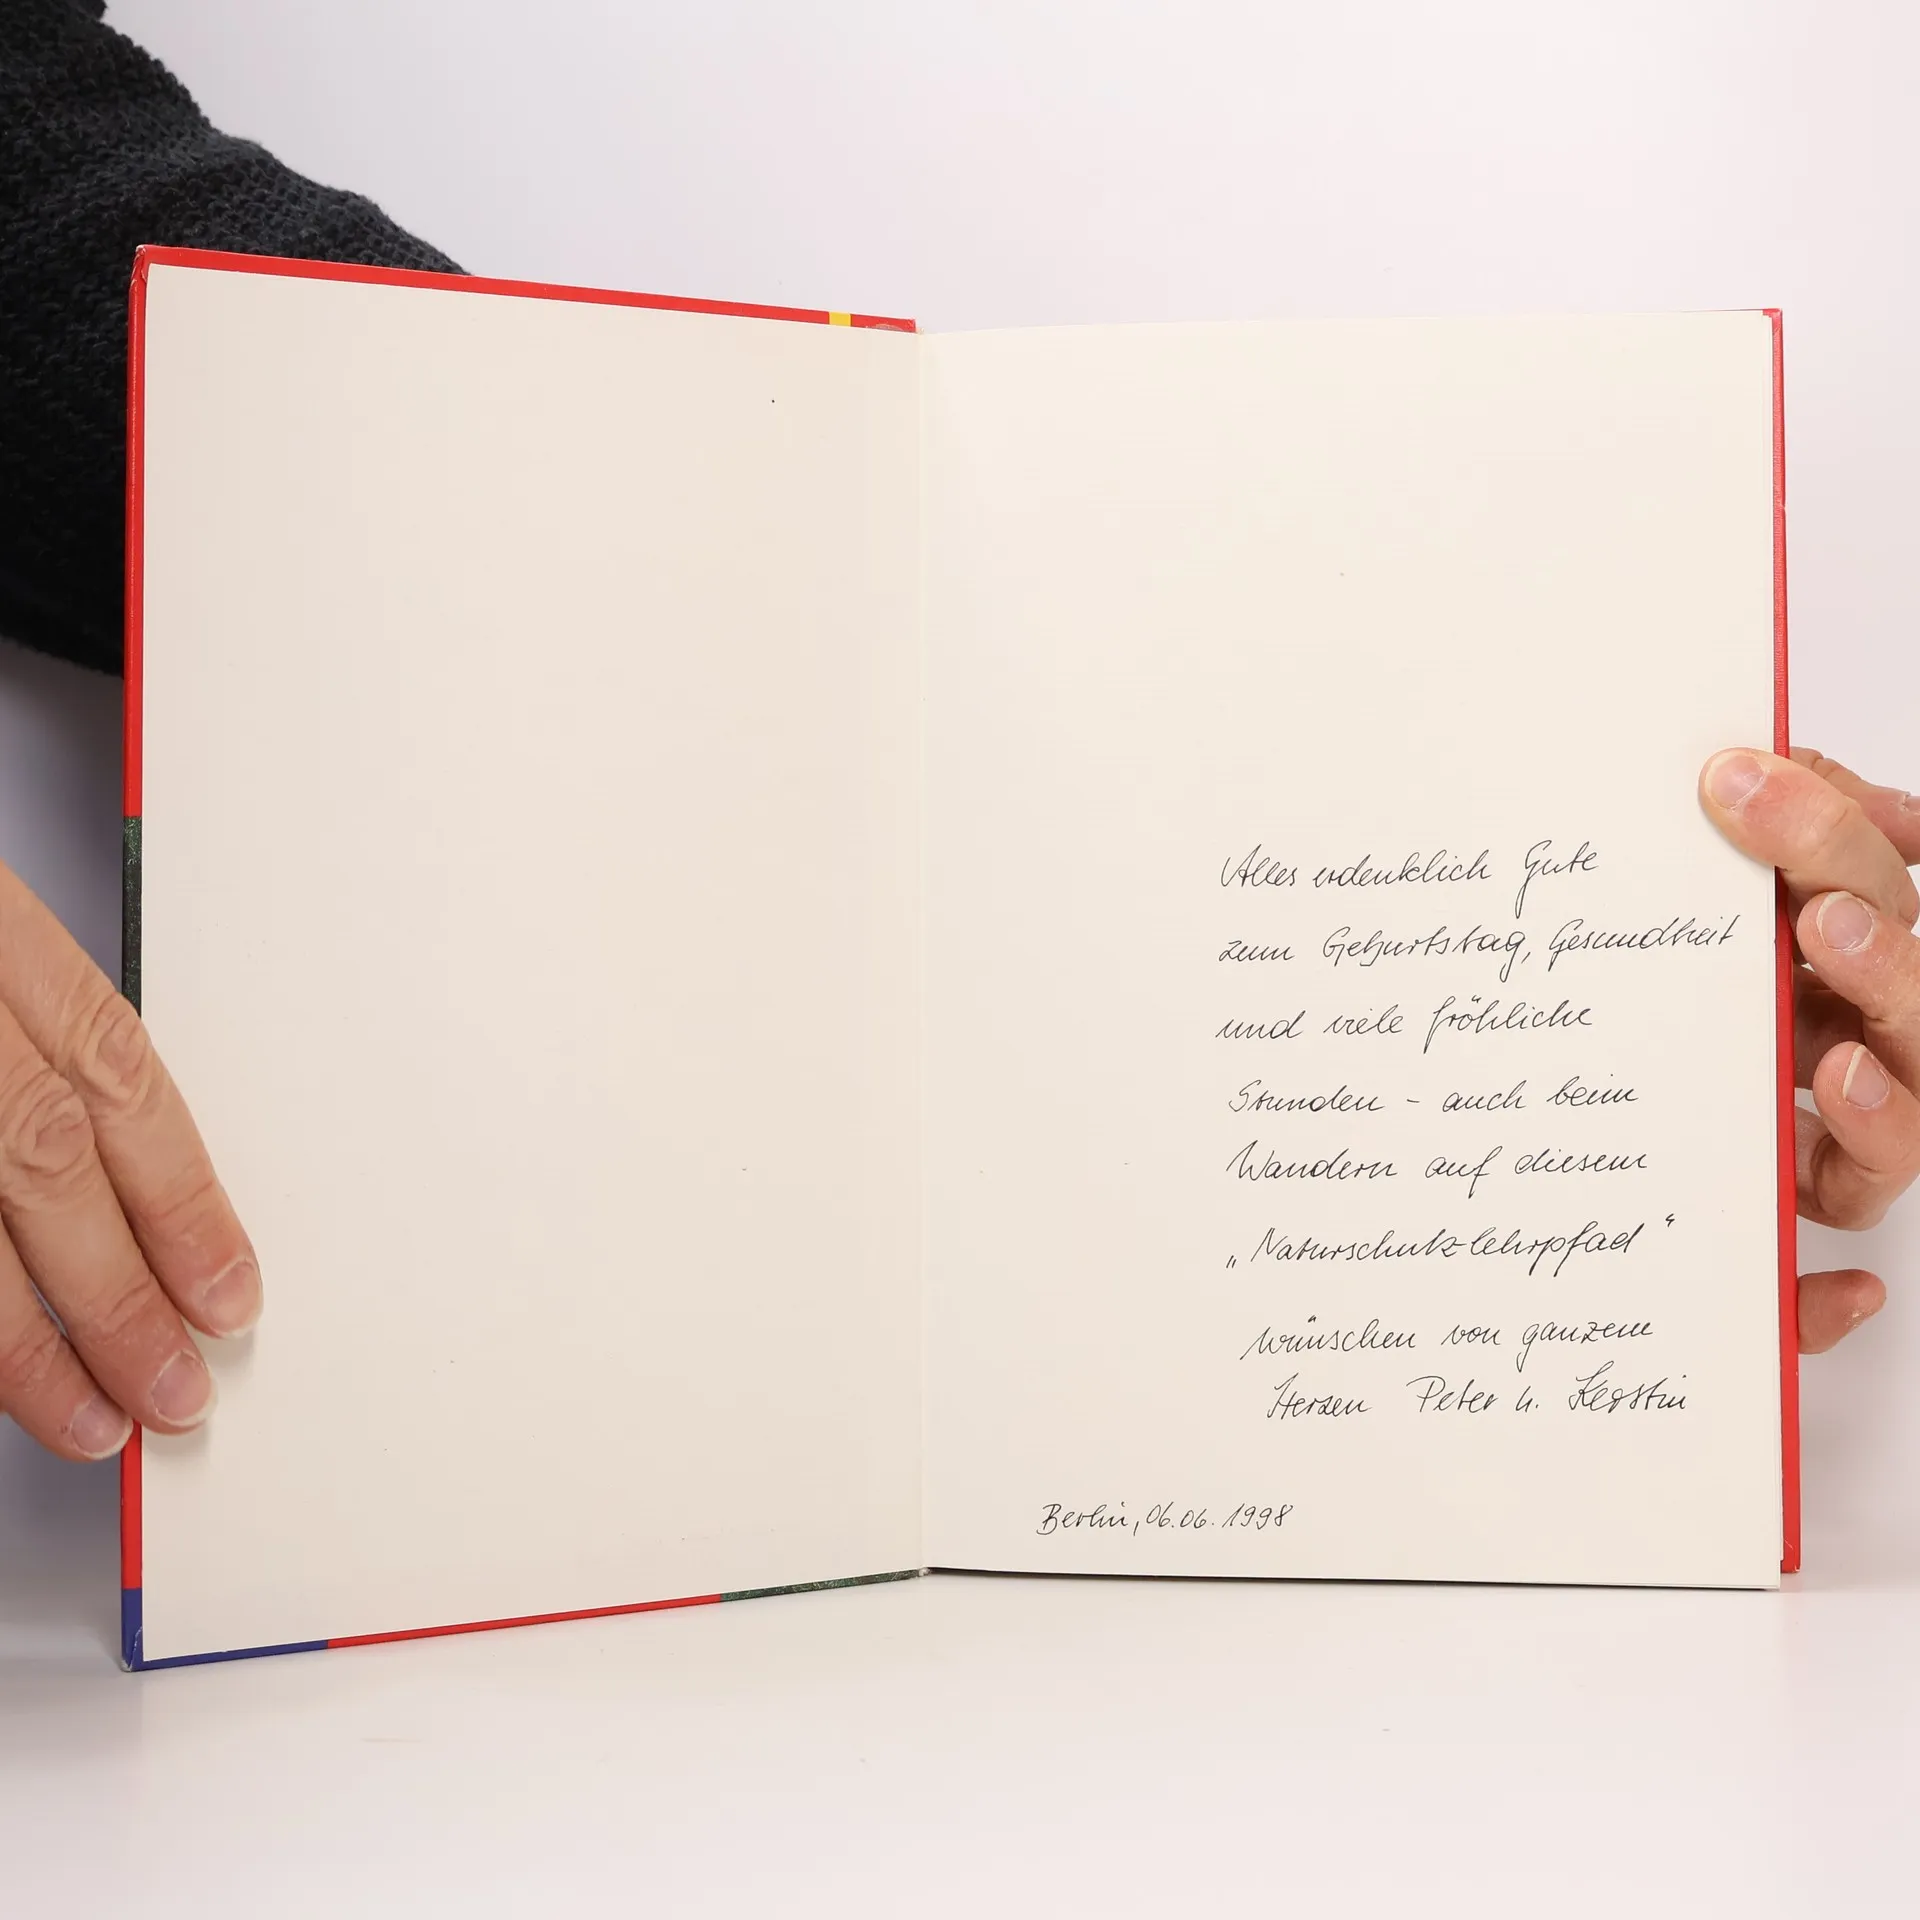 Alles erdenklich Gute
zum Geburtstag, Gesundheit
und viele fröhliche
Stunden - auch beim
Wandern auf diesem
„Naturschutzlehrpfad“
wünschen von ganzem
Herzen Peter u. Kerstin
Berlin, 06.06.1998